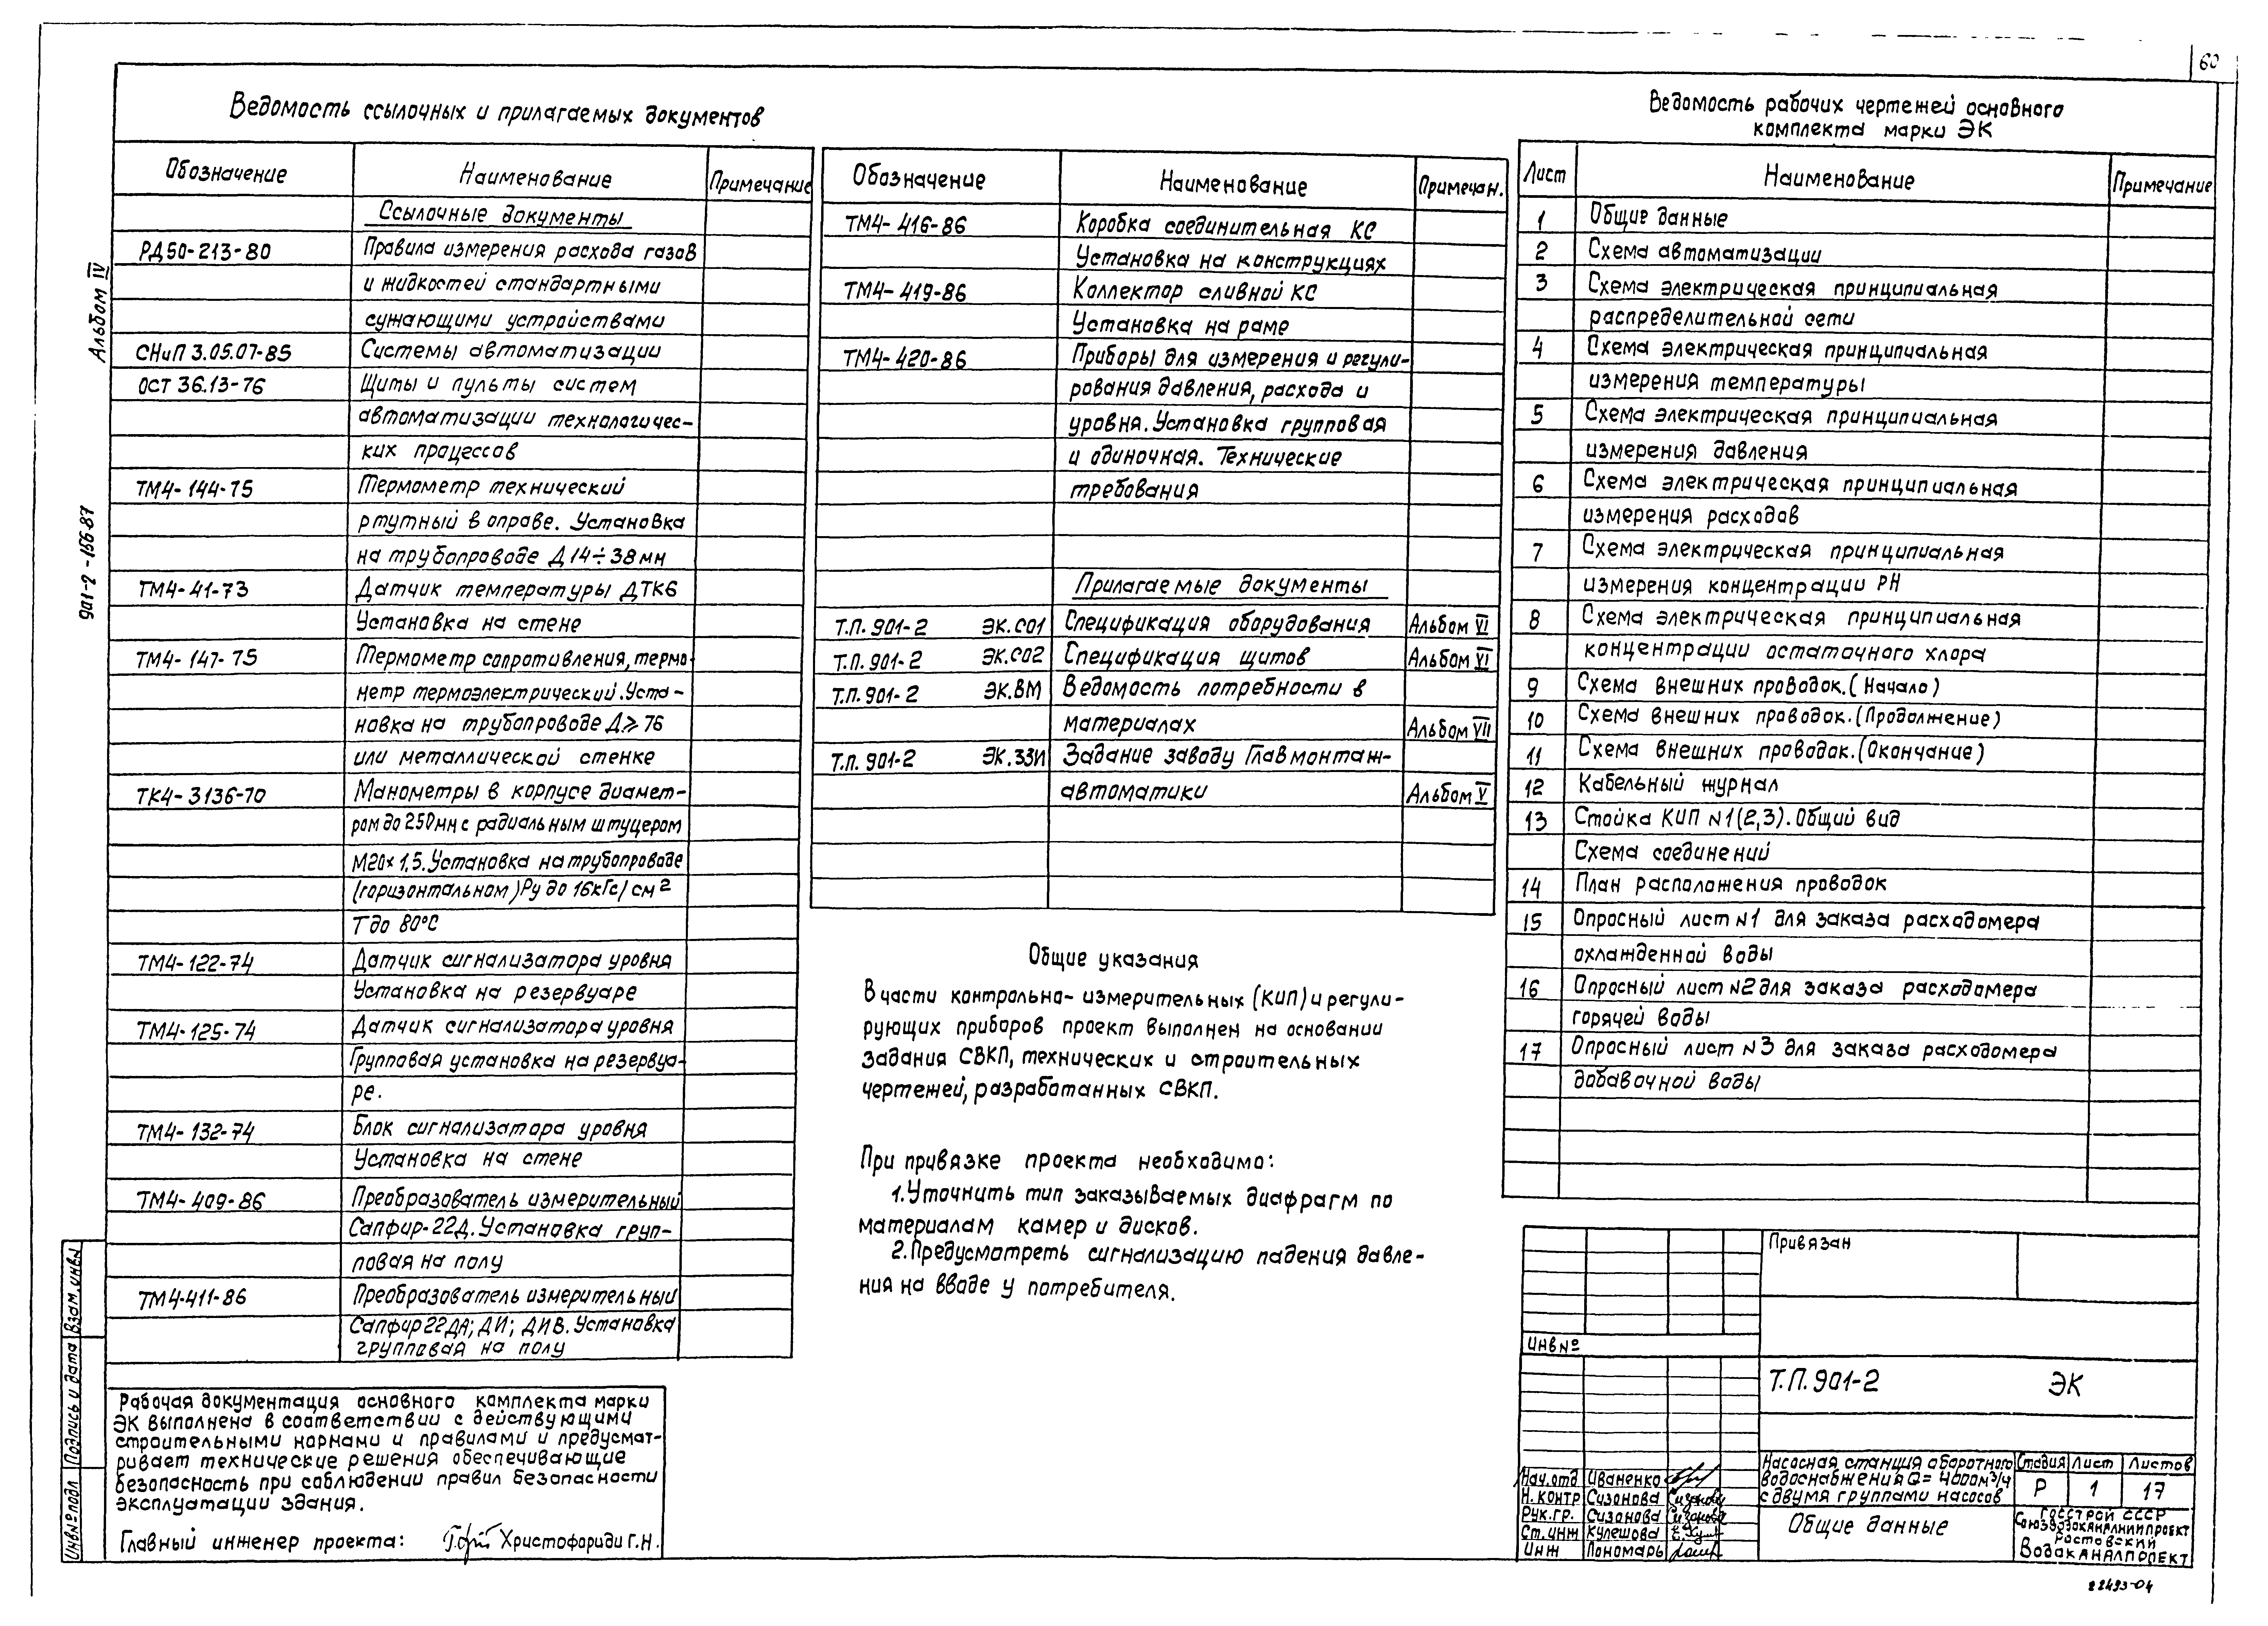 60
Ведомость ссылочных и прилагаемых документов
Обозначение Наименование Примечание
Ссылочные документы
РД50-213-80 Правила измерения расхода газов
и жидкостей стандартными
сужающими устройствами
СНиП 3.05.07-85 Системы автоматизации
ОСТ 36.13-76 Щиты и пульты систем
автоматизации технологичес-
ких процессов
ТМ4-144-75 Термометр технический
ртутный в оправе. Установка
на трубопроводе Д 14÷38мм
ТМ4-41-73 Датчик температуры ДТКБ
Установка на стене
ТМ4-147-75 Термометр сопротивления, термо-
метр термоэлектрический. Уста-
новка на трубопроводе Д≥76
или металлической стенке
ТК4-3136-70 Манометры в корпусе диамет-
ром до 250мм с радиальным штуцером
М20×1,5. Установка на трубопроводе
(горизонтальном) Ру до 16кГс/см2
Т до 80°С
ТМ4-122-74 Датчик сигнализатора уровня
Установка на резервуаре
ТМ4-125-74 Датчик сигнализатора уровня
Групповая установка на резервуа-
ре.
ТМ4-132-74 Блок сигнализатора уровня
Установка на стене
ТМ4-409-86 Преобразователь измерительный
Сапфир-22Д. Установка груп-
повая на полу
ТМ4-411-86 Преобразователь измерительный
Сапфир 22ДА; ДИ; ДИВ. Установка
групповая на полу
Обозначение Наименование Примечан.
ТМ4-416-86 Коробка соединительная КС
Установка на конструкциях
ТМ4-419-86 Коллектор сливной КС
Установка на раме
ТМ4-420-86 Приборы для измерения и регули-
рования давления, расхода и
уровня. Установка групповая
и одиночная. Технические
требования
Прилагаемые документы
Т.П. 901-2 ЭК.СО1 Спецификация оборудования Альбом VI
Т.П. 901-2 ЭК.СО2 Спецификация щитов Альбом VI
Т.П. 901-2 ЭК.ВМ Ведомость потребности в
материалах Альбом VII
Т.П. 901-2 ЭК.ЗЗИ Задание заводу Главмонтаж-
автоматики Альбом V
Общие указания
В части контрольно-измерительных (КИП) и регули-
рующих приборов проект выполнен на основании
задания СВКП, технических и строительных
чертежей, разработанных СВКП.
При привязке проекта необходимо:
1. Уточнить тип заказываемых диафрагм по
материалам камер и дисков.
2. Предусмотреть сигнализацию падения давле-
ния на вводе у потребителя.
Ведомость рабочих чертежей основного
комплекта марки ЭК
Лист Наименование Примечание
1 Общие данные
2 Схема автоматизации
3 Схема электрическая принципиальная
распределительной сети
4 Схема электрическая принципиальная
измерения температуры
5 Схема электрическая принципиальная
измерения давления
6 Схема электрическая принципиальная
измерения расходов
7 Схема электрическая принципиальная
измерения концентрации РН
8 Схема электрическая принципиальная
концентрации остаточного хлора
9 Схема внешних проводок. (Начало)
10 Схема внешних проводок. (Продолжение)
11 Схема внешних проводок. (Окончание)
12 Кабельный журнал
13 Стойка КИП N1(2,3). Общий вид
Схема соединений
14 План расположения проводок
15 Опросный лист N1 для заказа расходомера
охлажденной воды
16 Опросный лист N2 для заказа расходомера
горячей воды
17 Опросный лист N3 для заказа расходомера
добавочной воды
Альбом IV
901-2-156.87
Взам. инв.N
Подпись и дата
Инв№подл
Рабочая документация основного комплекта марки
ЭК выполнена в соответствии с действующими
строительными нормами и правилами и предусмат-
ривает технические решения обеспечивающие
безопасность при соблюдении правил безопасности
эксплуатации здания.
Главный инженер проекта: Христофориди Г.Н.
Привязан
Инв№
Т.П. 901-2 ЭК
Нач.отд Иваненко
Н.контр Сизонова
Рук.гр. Сизонова
Ст.инж Кулешова
Инж Пономарь
Насосная станция оборотного
водоснабжения Q=4000м3/ч
с двумя группами насосов
Стадия Лист Листов
Р 1 17
Общие данные
Госстрой СССР
Союзводоканалниипроект
Ростовский
Водоканалпроект
22493-04